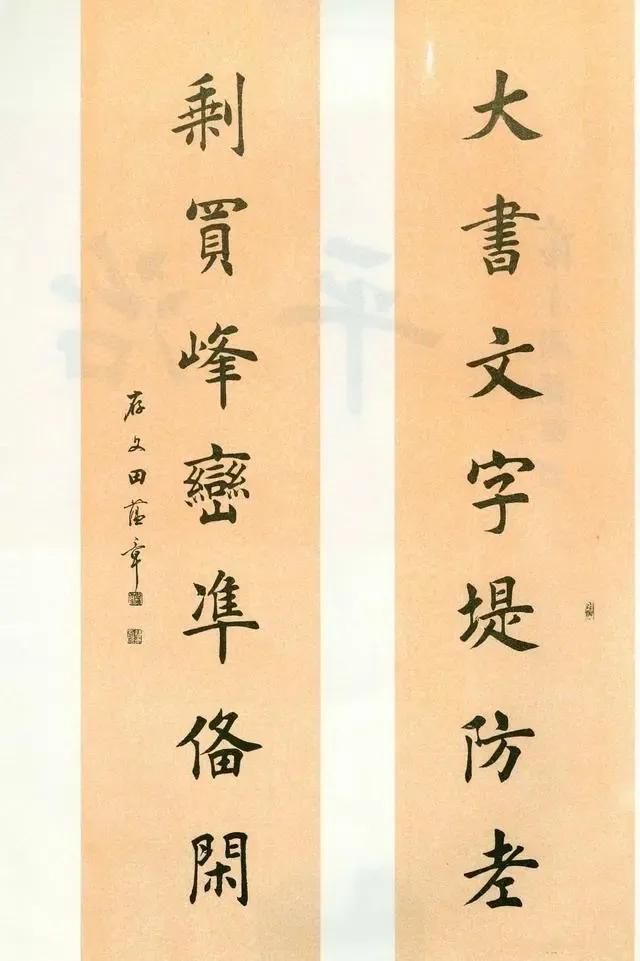 大書文字堤防老
剩買峰巒凖俻閑
存文田蕴章